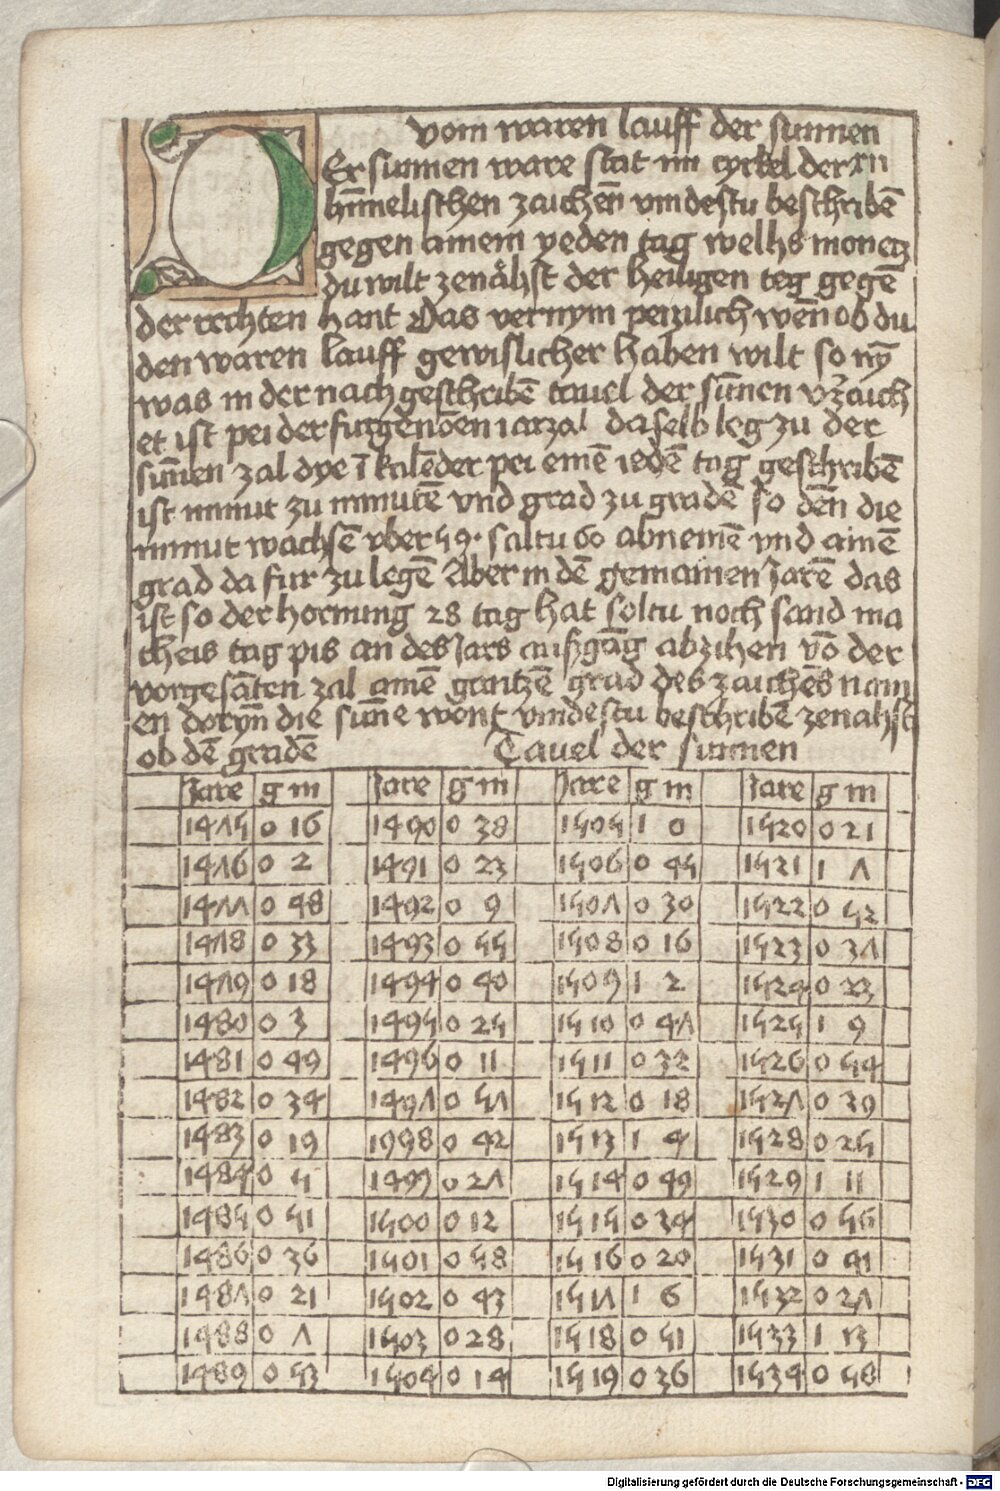 vom waren lauff der sunnen
DEr sunnen ware stat im cyrkel der xii
him̄elischen zaichen̄ vindestu beschribē
gegen ainem yeden tag welhs monetz
du wilt zenähst der heiligen teg gegē
der rechten hant Das vernym penzilich wen̄ ob du
den waren lauff gewislicher haben wilt so nym̄
was in der nachgeschribē tauel der sun̄en vrzaich
et ist pei der furgenom̄en iarzal daselb leg zu der
sun̄en zal dye ī kalēder pei einē iedē tag geschribē
ist minut zu minutē vnd grad zu gradē so den̄ die
minut wachsē vber 59. soltu 60 abnemē vnd ainē
grad da fur zu legē Aber in dē gemainen Jarē das
ist so der hornung 28 tag hat soltu noch sand ma
theis tag pis an des Jars ausgāg abzihen vō der
vorgesāten zal ainē gantzē grad des zaichēs nam
en doryn̄ die sun̄e wont vindestu beschribē zenahst
ob dē gradē Tauel der sunnen
Jare g m Jare g m Jare g m Jare g m
1475 0 16 1490 0 38 1505 1 0 1520 0 21
1476 0 2 1491 0 23 1506 0 45 1521 1 7
1477 0 48 1492 0 9 1507 0 30 1522 0 52
1478 0 33 1493 0 55 1508 0 16 1523 0 37
1479 0 18 1494 0 40 1509 1 2 1524 0 23
1480 0 3 1495 0 25 1510 0 47 1525 1 9
1481 0 49 1496 0 11 1511 0 32 1526 0 54
1482 0 34 1497 0 57 1512 0 18 1527 0 39
1483 0 19 1998 0 42 1513 1 4 1528 0 25
1484 0 5 1499 0 27 1514 0 49 1529 1 11
1485 0 51 1500 0 12 1515 0 34 1530 0 56
1486 0 36 1501 0 58 1516 0 20 1531 0 41
1487 0 21 1502 0 43 1517 1 6 1532 0 27
1488 0 7 1503 0 28 1518 0 51 1533 1 13
1489 0 53 1504 0 14 1519 0 36 1534 0 58
Digitalisierung gefördert durch die Deutsche Forschungsgemeinschaft - DFG